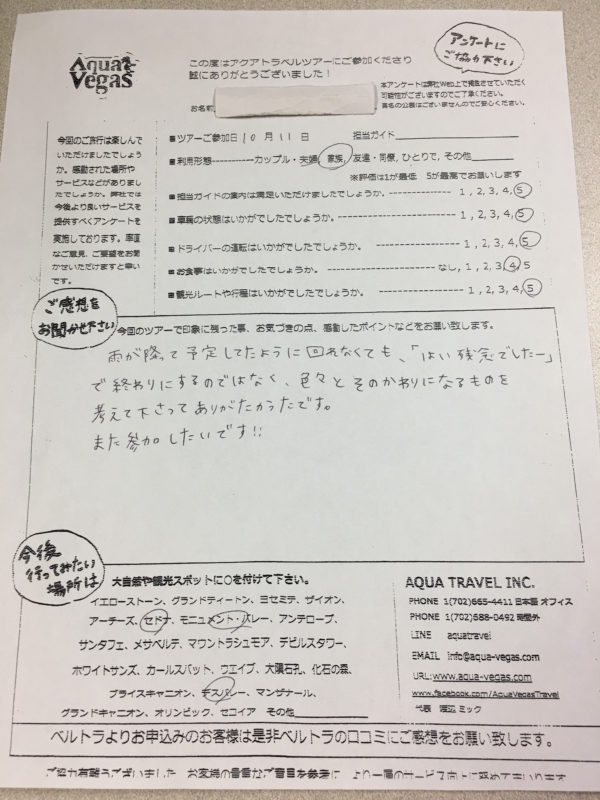 Aqua Vegas
この度はアクアトラベルツアーにご参加くださり
誠にありがとうございました！
アンケートに
ご協力下さい
本アンケートは弊社Web上で掲載させていただく
可能性がございますのでご了承ください。
実名の公表はございませんのでご安心ください。
お名前
今回のご旅行は楽しんで
いただけましたでしょう
か。感動された場所や
サービスなどがありまし
たでしょうか。弊社では
今後より良いサービスを
提供すべくアンケートを
実施しております。率直
なご意見、ご要望をお聞
かせいただけますと幸い
です。
■ツアーご参加日 10月11日 担当ガイド
■利用形態-----------カップル・夫婦, 家族, 友達・同僚, ひとりで, その他
※評価は1が最低 5が最高でお願いします
■担当ガイドの案内は満足いただけましたでしょうか。 1, 2, 3, 4, 5
■車輌の状態はいかがでしたでしょうか。 1, 2, 3, 4, 5
■ドライバーの運転はいかがでしたでしょうか。 1, 2, 3, 4, 5
■お食事はいかがでしたでしょうか。 なし, 1, 2, 3, 4, 5
■観光ルートや行程はいかがでしたでしょうか。 1, 2, 3, 4, 5
ご感想を
お聞かせ下さい
今回のツアーで印象に残った事、お気づきの点、感動したポイントなどをお願い致します。
雨が降って予定してたように回れなくても、「はい残念でしたー」
で終わりにするのではなく、色々とそのかわりになるものを
考えて下さってありがたかったです。
また参加したいです!!
今後
行ってみたい
場所は
大自然や観光スポットに○を付けて下さい。
イエローストーン、グランドティートン、ヨセミテ、ザイオン、
アーチーズ、セドナ、モニュメント・バレー、アンテロープ、
サンタフェ、メサベルデ、マウントラシュモア、デビルスタワー、
ホワイトサンズ、カールスバット、ウエイブ、大隕石孔、化石の森、
ブライスキャニオン、デスバレー、マンザナール、
グランドキャニオン、オリンピック、セコイア その他
AQUA TRAVEL INC.
PHONE 1(702)665-4411 日本語 オフィス
PHONE 1(702)688-0492 時間外
LINE aquatravel
EMAIL info@aqua-vegas.com
URL: www.aqua-vegas.com
www.facebook.com/AquaVegasTravel
代表 渡辺 ミック
ベルトラよりお申込みのお客様は是非ベルトラの口コミにご感想をお願い致します。
ご協力有難うございました お客様の貴重なご意見を参考に、より一層のサービス向上に努めてまいります